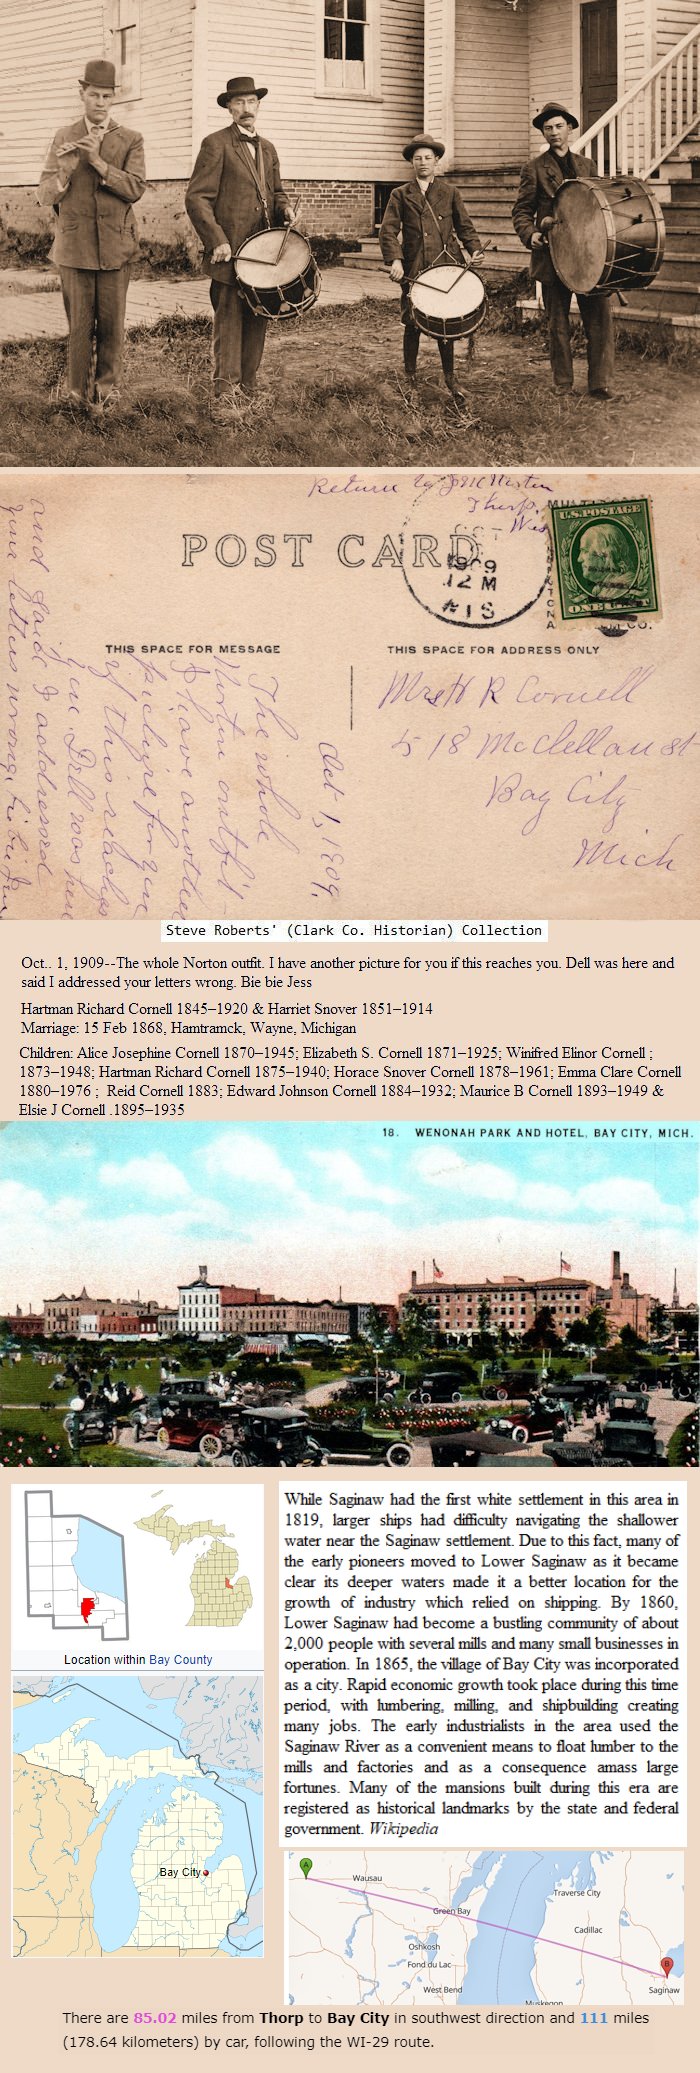 Return to J M Norton
Thorp,
Wis
POST CARD
1909
12 M
WIS
U.S. POSTAGE
ONE CENT
THIS SPACE FOR MESSAGE
THIS SPACE FOR ADDRESS ONLY
Oct 1, 1909.
The whole
Norton outfit-
I have another
picture for you
if this reaches
you. Dell was here
and said I addressed
your letters wrong. Bie bie Jess
Mrs H R Cornell
518 McClellan St
Bay City
Mich
Steve Roberts' (Clark Co. Historian) Collection
Oct.. 1, 1909--The whole Norton outfit. I have another picture for you if this reaches you. Dell was here and
said I addressed your letters wrong. Bie bie Jess
Hartman Richard Cornell 1845–1920 & Harriet Snover 1851–1914
Marriage: 15 Feb 1868, Hamtramck, Wayne, Michigan
Children: Alice Josephine Cornell 1870–1945; Elizabeth S. Cornell 1871–1925; Winifred Elinor Cornell ;
1873–1948; Hartman Richard Cornell 1875–1940; Horace Snover Cornell 1878–1961; Emma Clare Cornell
1880–1976 ; Reid Cornell 1883; Edward Johnson Cornell 1884–1932; Maurice B Cornell 1893–1949 &
Elsie J Cornell .1895–1935
18. WENONAH PARK AND HOTEL, BAY CITY, MICH.
Location within Bay County
Bay City
While Saginaw had the first white settlement in this area in
1819, larger ships had difficulty navigating the shallower
water near the Saginaw settlement. Due to this fact, many of
the early pioneers moved to Lower Saginaw as it became
clear its deeper waters made it a better location for the
growth of industry which relied on shipping. By 1860,
Lower Saginaw had become a bustling community of about
2,000 people with several mills and many small businesses in
operation. In 1865, the village of Bay City was incorporated
as a city. Rapid economic growth took place during this time
period, with lumbering, milling, and shipbuilding creating
many jobs. The early industrialists in the area used the
Saginaw River as a convenient means to float lumber to the
mills and factories and as a consequence amass large
fortunes. Many of the mansions built during this era are
registered as historical landmarks by the state and federal
government. Wikipedia
A
Wausau
Green Bay
Traverse City
Cadillac
Oshkosh
Fond du Lac
West Bend
Muskegon
B
Saginaw
There are 85.02 miles from Thorp to Bay City in southwest direction and 111 miles
(178.64 kilometers) by car, following the WI-29 route.